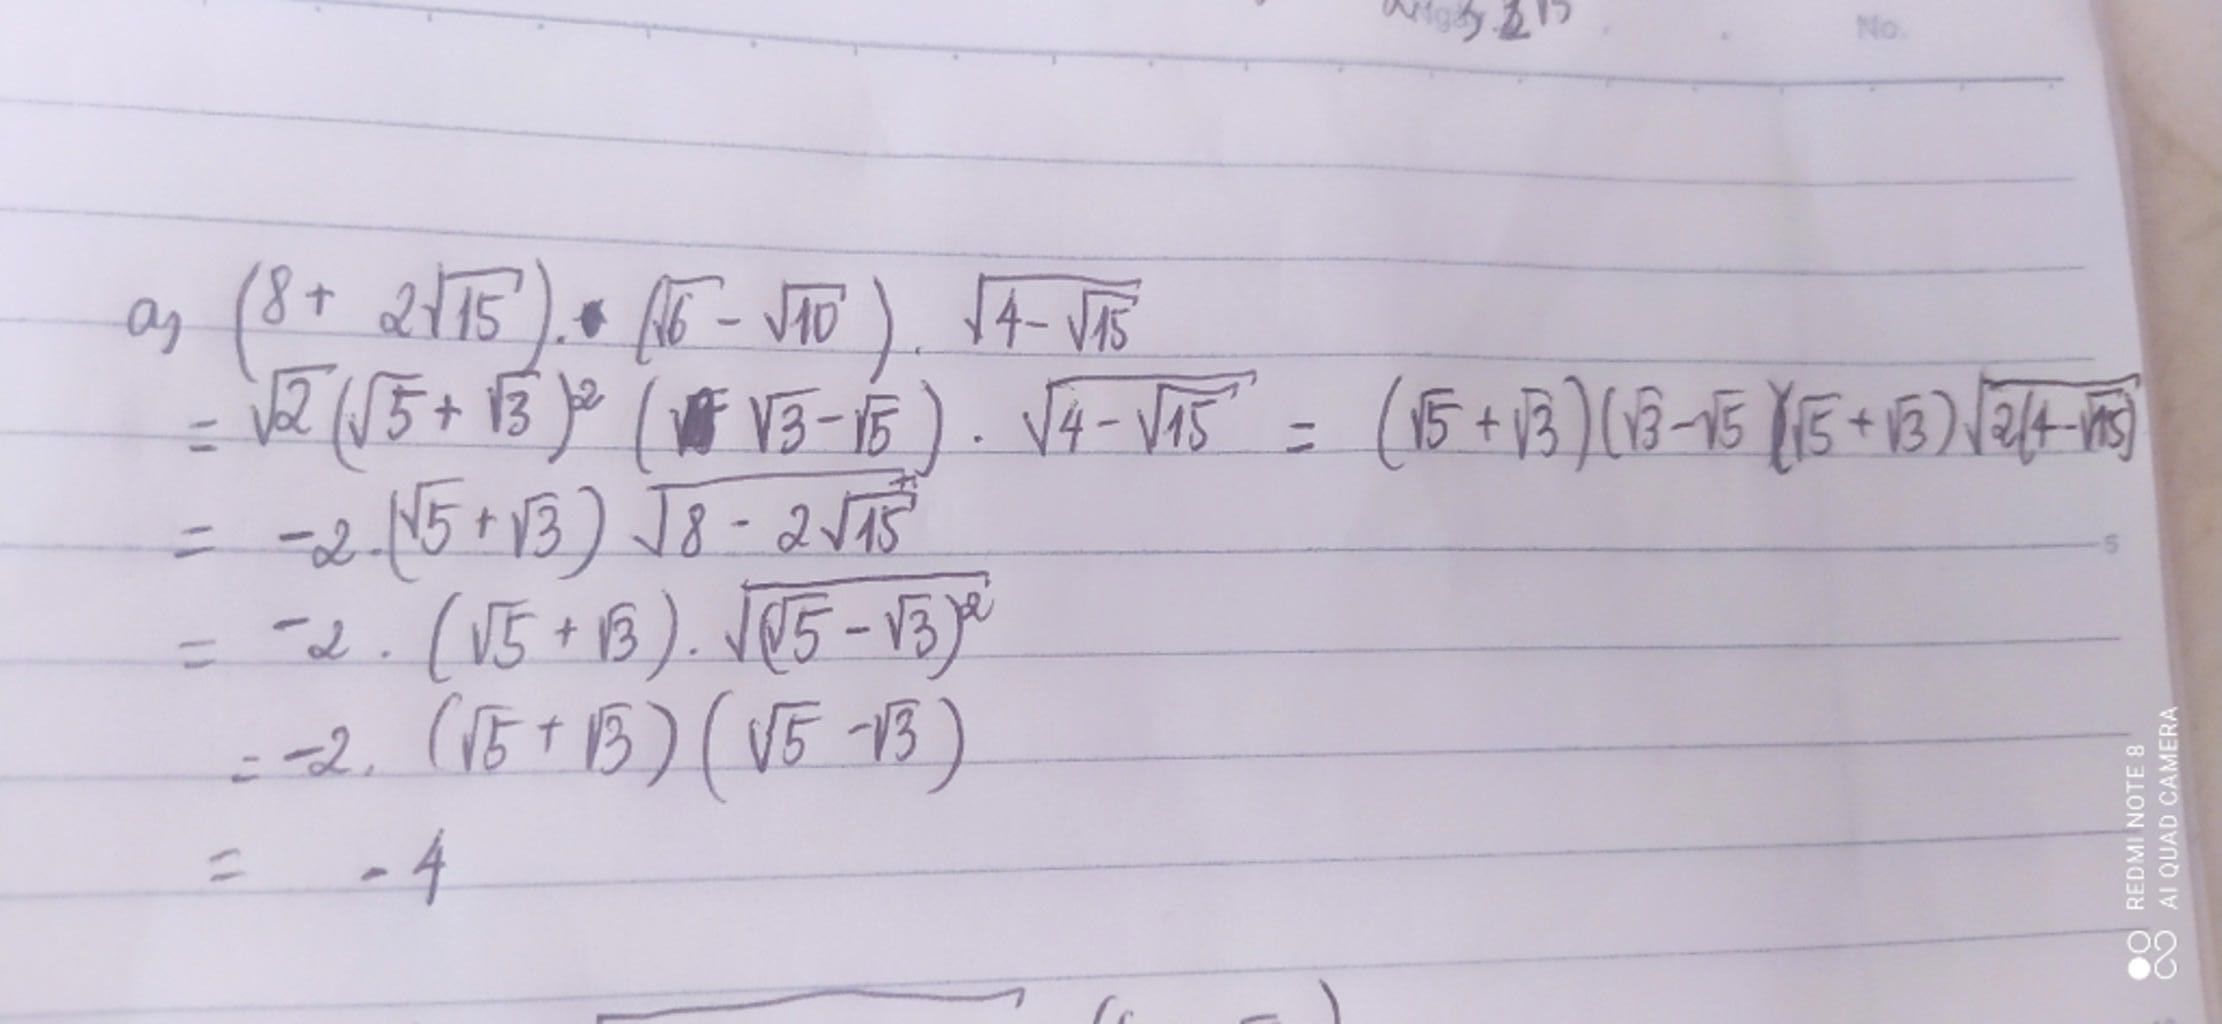 No.
a, (8 + 2√15) . (√6 - √10) . √(4 - √15)
= √2 (√5 + √3)² (√3 - √5) . √(4 - √15) = (√5 + √3)(√3 - √5)(√5 + √3)√(2(4 - √15))
= -2 . (√5 + √3) √(8 - 2√15)
5
= -2 . (√5 + √3) . √((√5 - √3)²)
= -2 . (√5 + √3)(√5 - √3)
= -4
REDMI NOTE 8
AI QUAD CAMERA